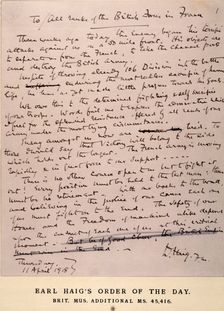 To All ranks of the British Forces in France
Three weeks ago today the Enemy began his terrific
attacks against us on a 50 mile front. His objects
to separate us from the French, to take the Channel ports
and destroy the British Army.
In spite of throwing already 106 Divisions into the battle
and the most reckless sacrifice of human
life, he has yet made little progress towards his goals
We owe this to the determined fighting & self sacrifice
of our troops. Words fail me to express the admiration which
I feel for the splendid resistance offered by all ranks of our
Army under the most trying circumstances.
Many amongst us now are tired.
those I would say that Victory will belong to the side
which holds out the longest. The French Army is moving
rapidly & in great force to our support.
There is no other course open to us but to fight it
out! Every position must be held to the last man: there
must be no retirement. With our backs to the wall
and believing in the justice of our cause each one
of us must fight on to the end. The safety of our
Homes and the Freedom of mankind alike depend
upon the conduct of each one of us at this critical
moment.
D. Haig. F.M.
Thursday
11 April 1918
EARL HAIG'S ORDER OF THE DAY.
BRIT. MUS. ADDITIONAL MS. 45,416.